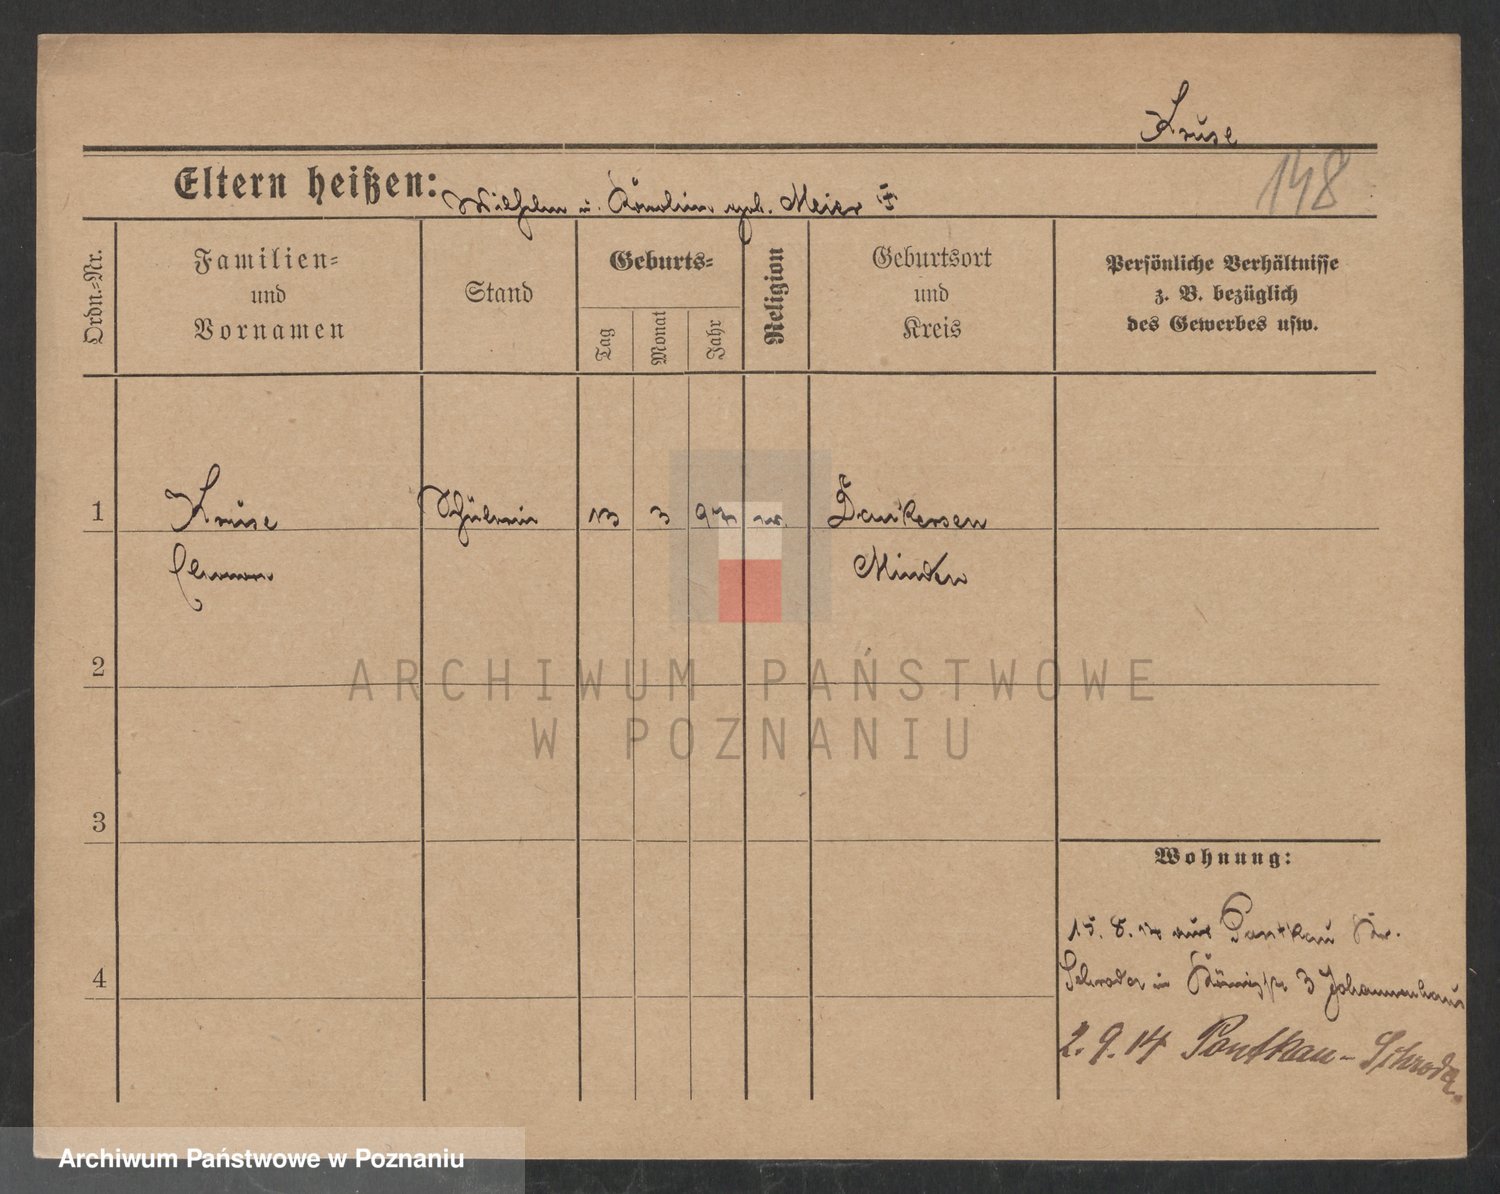 Kruse
148
Eltern heißen: Wilhelm u. Karolin geb. Meier
Ordn.-Nr.
Familien-
und
Vornamen
Stand
Geburts-
Tag
Monat
Jahr
Religion
Geburtsort
und
Kreis
Persönliche Verhältnisse
z. B. bezüglich
des Gewerbes usw.
1
Kruse
Schülerin
13
3
97
Dankersen
Minden
2
3
4
Wohnung:
15. 8. 14 aus Pontkau Kr.
Schroda in 3 Johannenhaus
2.9.14 Pontkau-Schroda.
ARCHIWUM PAŃSTWOWE
W POZNANIU
Archiwum Państwowe w Poznaniu